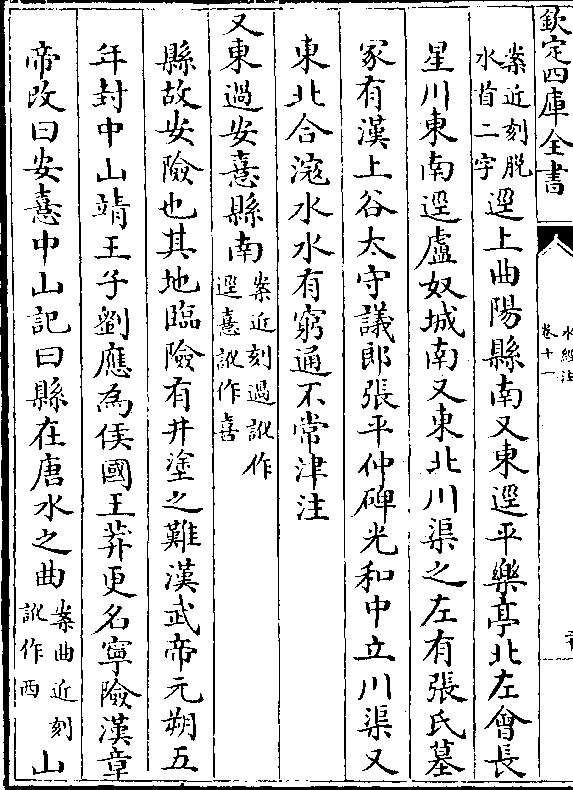 欽定四庫全書
水經注
卷十一
案近刻脱
水首二字逕上曲陽縣南又東逕平樂亭北左㑹長
星川東南逕盧奴城南又東北川渠之左有張氏墓
冢有漢上谷太守議郎張平仲碑光和中立川渠又
東北合滱水水有窮通不常津注
又東過安憙縣南案近刻過訛作
逕憙訛作喜
縣故安險也其地臨險有井塗之難漢武帝元朔五
年封中山靖王子劉應為侯國王莽更名寧險漢章
帝改曰安憙中山記曰縣在唐水之曲案曲近刻
訛作西山